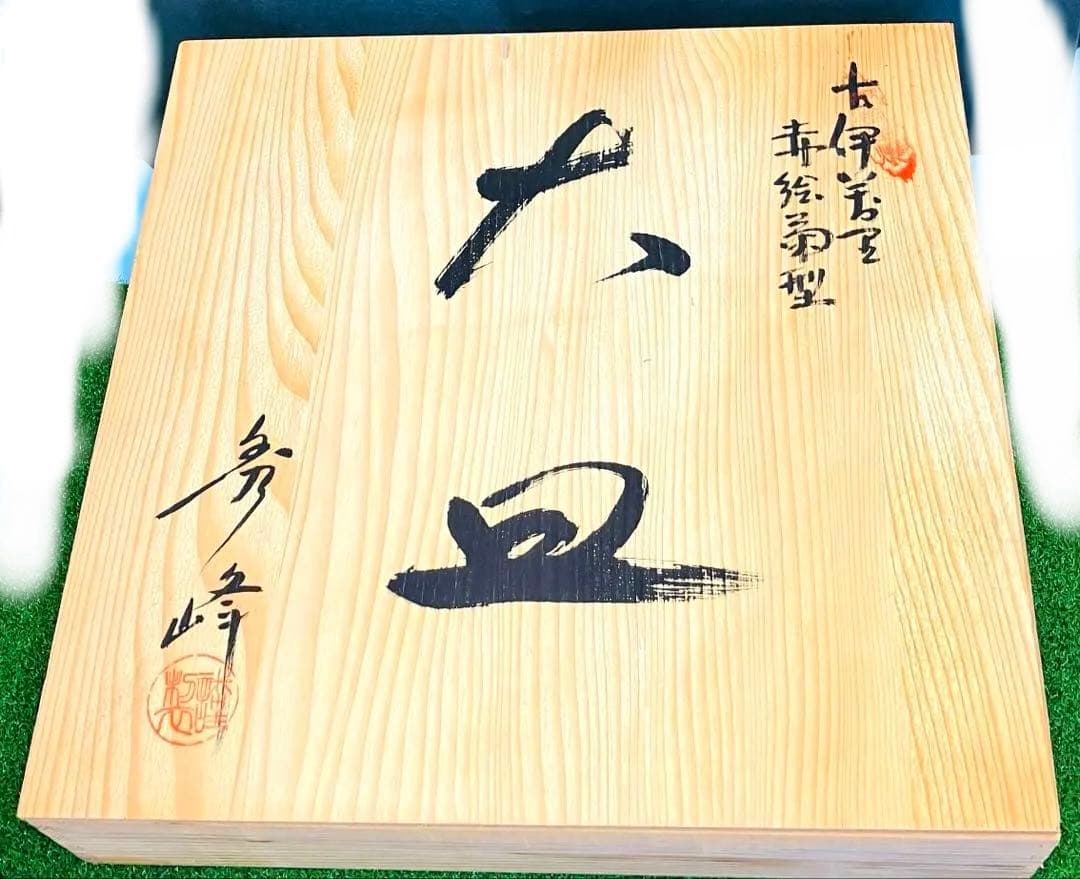 古伊万里
赤絵菊型
大皿
秀峰